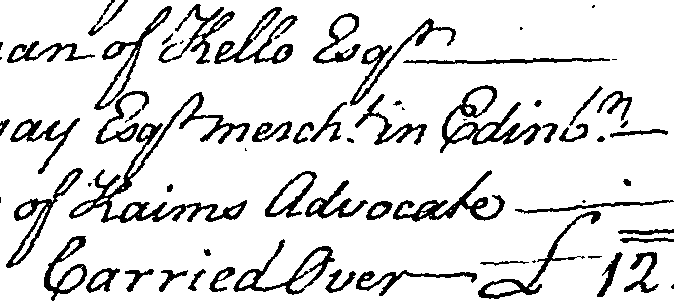 an of Kello Esqr
ay Esqr merch.t in Edinb.n
of Kaims Advocate
Carried Over £ 12